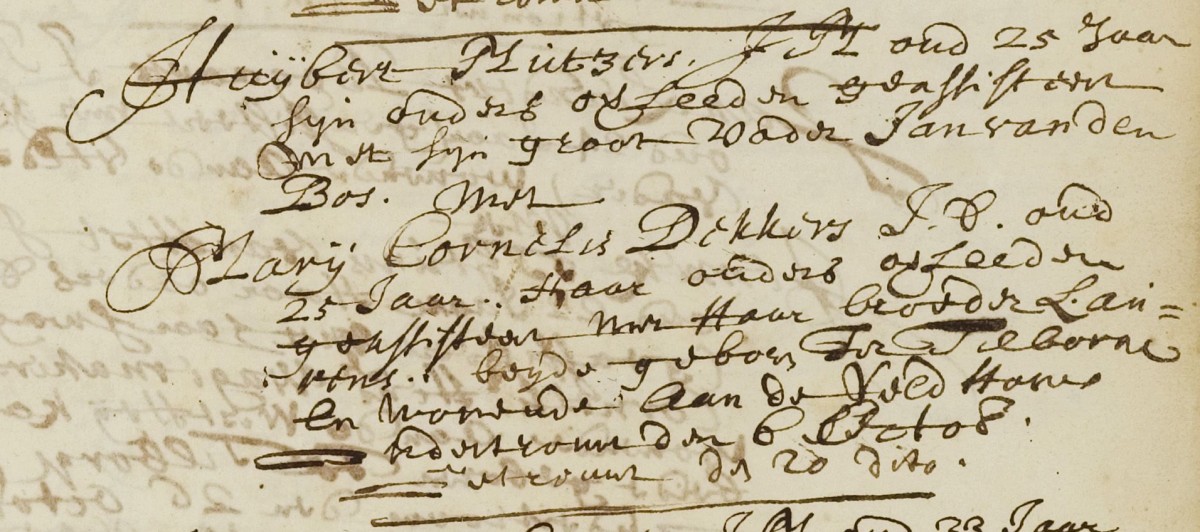 Huijbert Mutzers, JM oud 25 Jaar
sijn ouders overleeden geassisteert
met sijn groot Vader Jan van den
Bos. Met
Marij Cornelis Dekkers J.D. oud
25 Jaar. Haar ouders overleeden
geassisteert met Haar broeder Lau=
rens. beyde geboren Tilborg
En wonende Aan de Veld Hove
ondertrout den 6 Octob.
getrouwt den 20 dito.
JM oud 23 Jaar